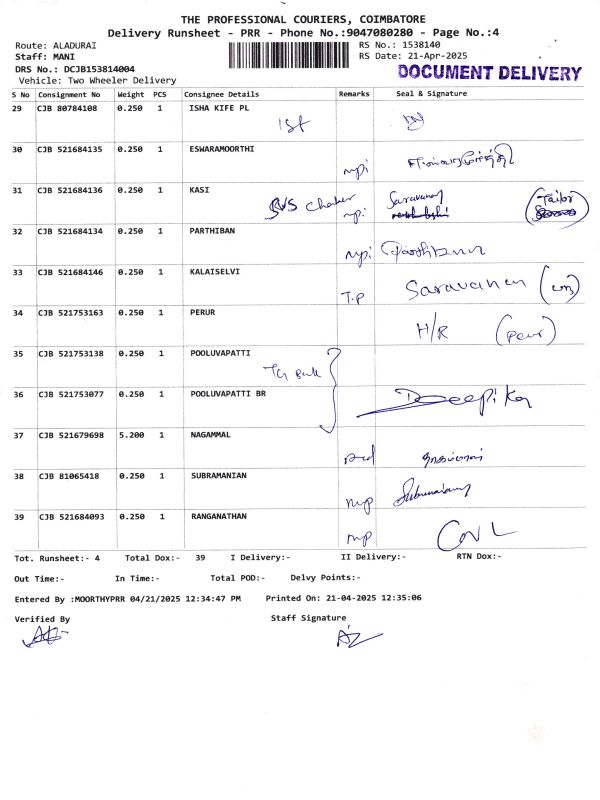 THE PROFESSIONAL COURIERS, COIMBATORE
Delivery Runsheet - PRR - Phone No.:9047080280 - Page No.:4
Route: ALADURAI
RS No.: 1538140
Staff: MANI
RS Date: 21-Apr-2025
DRS No.: DCJB153814004
DOCUMENT DELIVERY
Vehicle: Two Wheeler Delivery
S No Consignment No Weight PCS Consignee Details Remarks Seal & Signature
29 CJB 80784108 0.250 1 ISHA KIFE PL
1St
30 CJB 521684135 0.250 1 ESWARAMOORTHI
31 CJB 521684136 0.250 1 KASI
Saravanan (Tailor
32 CJB 521684134 0.250 1 PARTHIBAN
33 CJB 521684146 0.250 1 KALAISELVI
T.P Saravanan
34 CJB 521753163 0.250 1 PERUR
H/R
35 CJB 521753138 0.250 1 POOLUVAPATTI
36 CJB 521753077 0.250 1 POOLUVAPATTI BR
Deepika
37 CJB 521679698 5.200 1 NAGAMMAL
38 CJB 81065418 0.250 1 SUBRAMANIAN
mp
39 CJB 521684093 0.250 1 RANGANATHAN
mp
Tot. Runsheet:- 4 Total Dox:- 39 I Delivery:- II Delivery:- RTN Dox:-
Out Time:- In Time:- Total POD:- Delvy Points:-
Entered By :MOORTHYPRR 04/21/2025 12:34:47 PM Printed On: 21-04-2025 12:35:06
Verified By Staff Signature